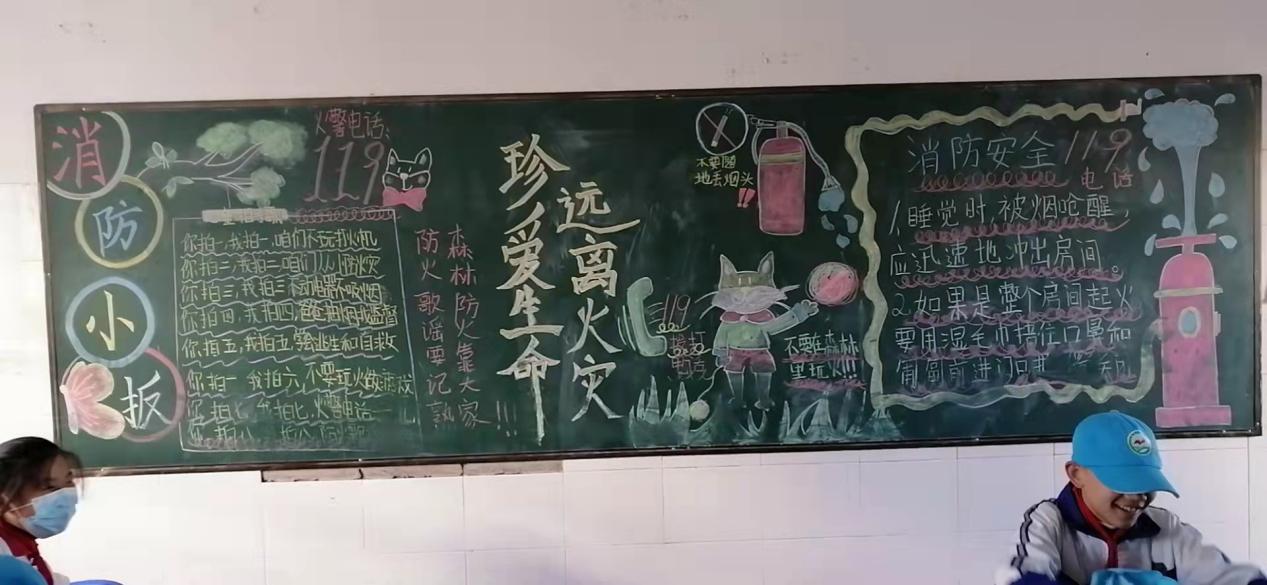 消
防
小
扳
火警电话:
119
你拍一,我拍一,咱们不玩打火机
你拍二,我拍二,咱们从小防火灾
你拍三,我拍三
你拍四,我拍四,爸爸抽烟我监督
你拍五,我拍五,学会逃生和自救
你拍一 我拍六,不要玩火
火警电话
森林防火靠大家
防火歌谣要记熟!!!
珍爱生命
远离火灾
不要随
地丢烟头
!!
119
拨打
电话
不要在森林
里玩火!!!
消防安全119
电话
1,睡觉时,被烟呛醒,
应迅速地冲出房间。
2.如果是整个房间起火
要用湿毛巾捂住口鼻和
匍匐前进